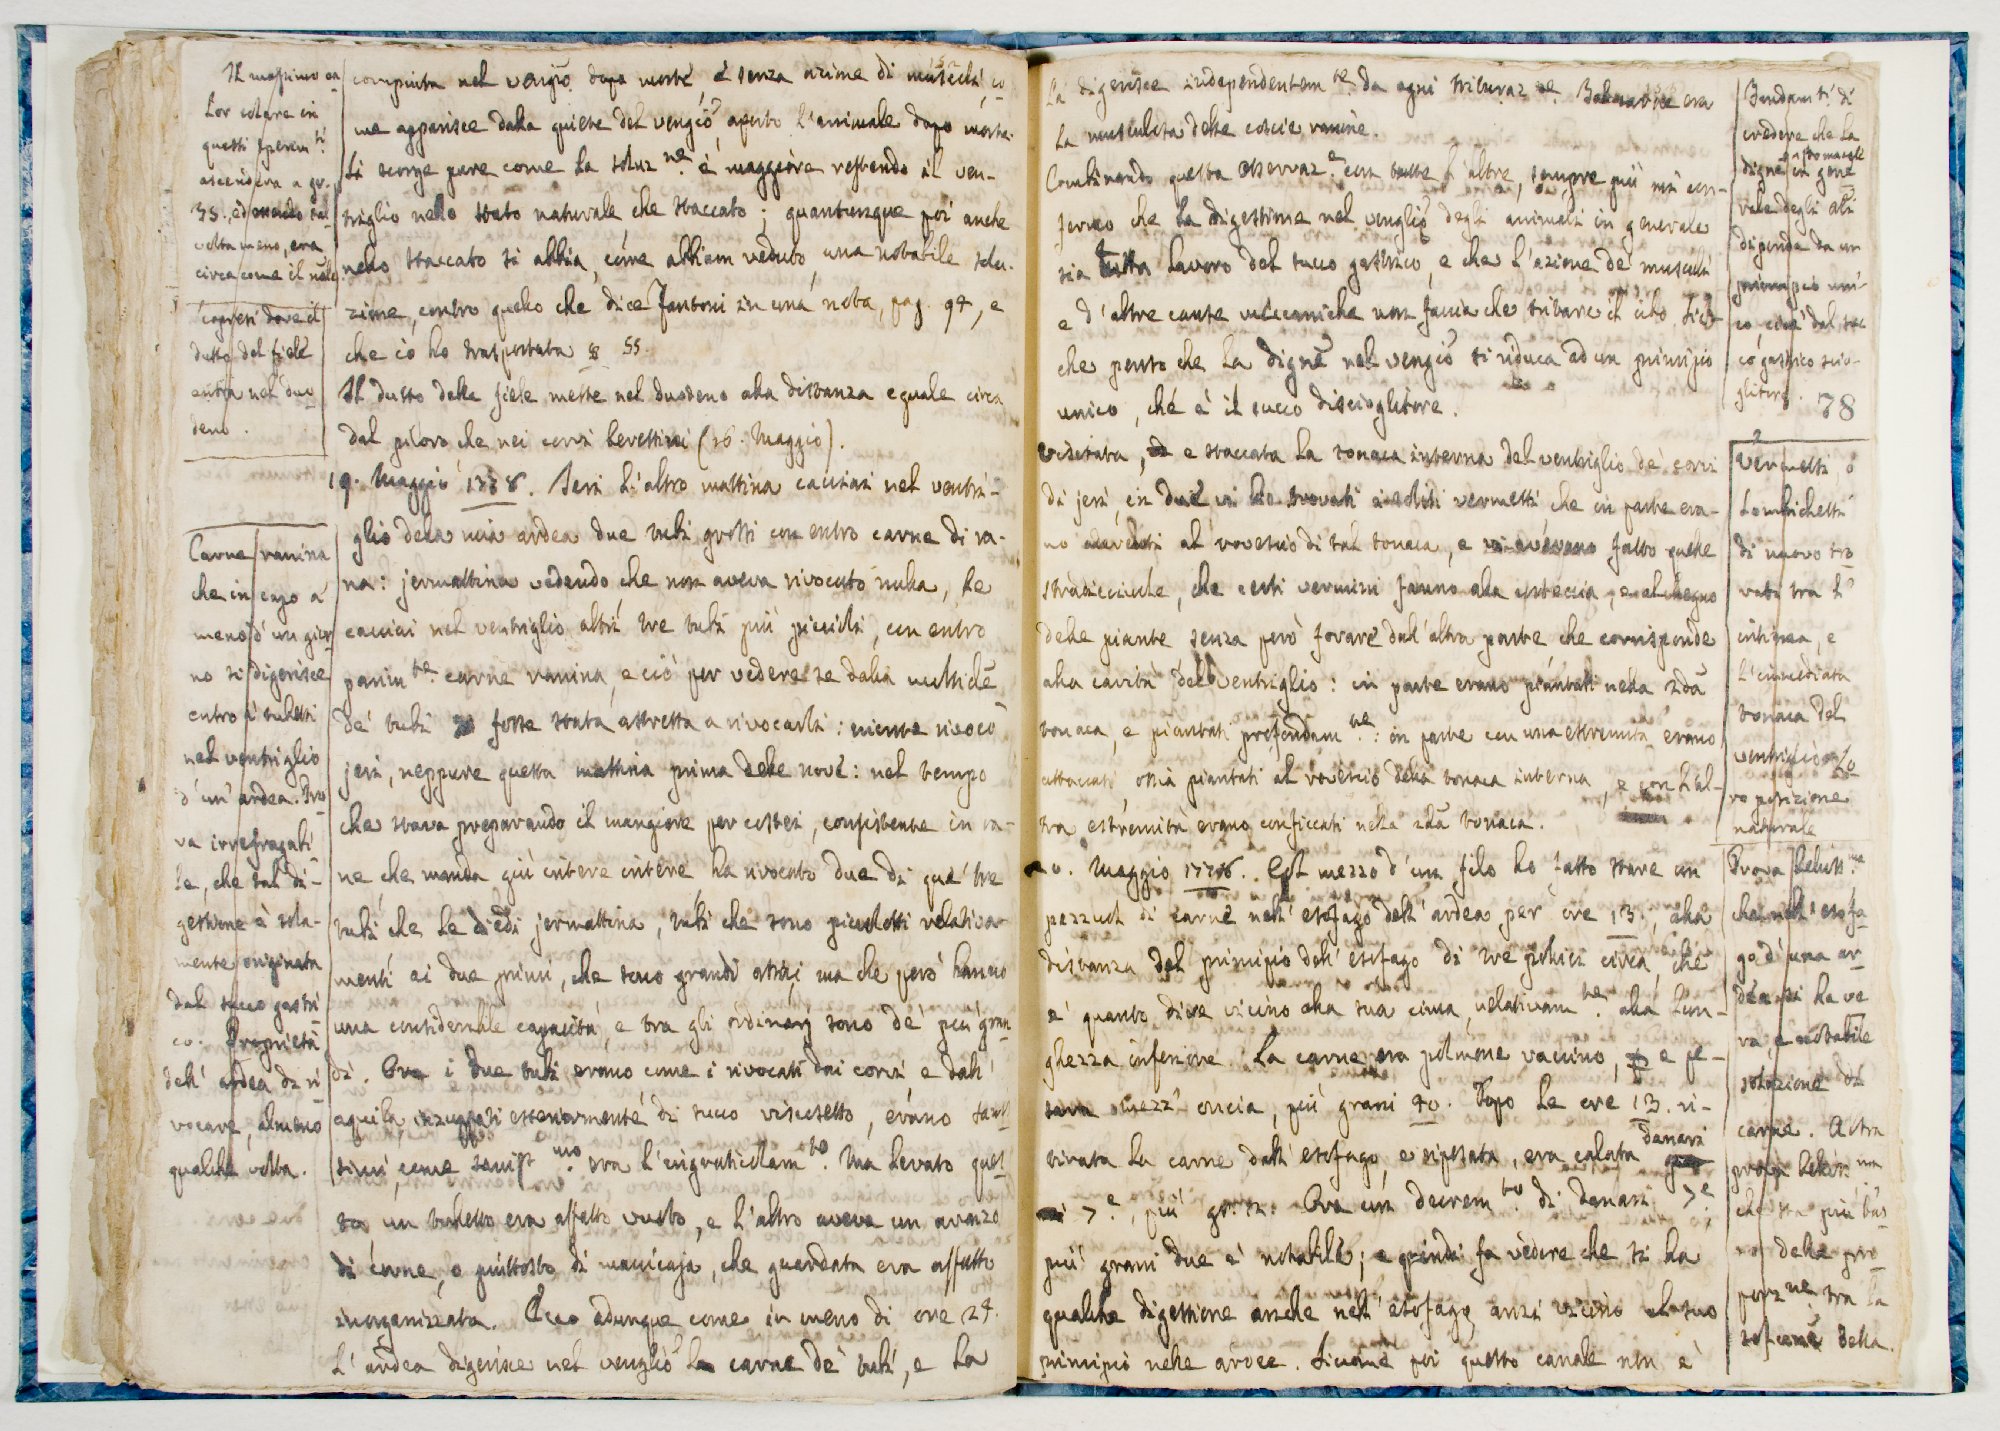 Il massimo ca
lor solare in
questi sperim.ti
ascendeva a gr.
35., ed essendo tal
volta meno, era
circa come il nṡle
Scopresi dove il
dutto del fiele
entra nel duo
deno.
Carne ranina
che in corpo a
meno d'un gior
no si digerisce
entro i tubetti
nel ventriglio
d'un'ardea. Pro
va irrefragabi
le, che tal di-
gestione è sola-
mente originata
dal succo gastri
co. Proprietà
dell'ardea di ri
vocare, almeno
qualche volta.
compiuta nel vengịo dopo morte, è senza azione di muscoli, co
me apparisce dalla quiete del vengịo, aperto l'animale dopo morte.
Si scorge pure come la soluz.ne è maggiore restando il ven-
triglio nello stato naturale, che staccato; quantunque poi anche
nello staccato si abbia, come abbiam veduto, una notabile solu-
zione, contro quello che dice Fantoni in una nota, pag. 94, e
che io ho trasportata § 55.
Il dutto della fiele mette nel duodeno alla distanza eguale circa
dal piloro che nei corvi berettini (16. Maggio).
19. Maggio 1778. Jeri l'altro mattina cacciai nel ventri-
glio della mia ardea due tubi grossi con entro carne di ra-
na: jermattina vedendo che non aveva rivocato nulla, le
cacciai nel ventriglio altri tre tubi più piccioli, con entro
parim.te carne ranina, e ciò per vedere se dalla moltitudē
de' tubi fosse stata astretta a rivocarli: niente rivocò
jeri, neppure questa mattina prima delle nove: nel tempo
che stava preparando il mangiare per costei, consistente in ra-
ne che manda giù intere intere ha rivocato due di que' tre
tubi che le diedi jermattina, tubi che sono picciolotti relativa-
menti ai due primi, che sono grandi assai, ma che però hanno
una considerabile capacità, e tra gli ordinarj sono de' più gran
di. Ora i due tubi erano come i rivocati dai corvi, e dall'
aquila, inzuppati esternamente di succo viscosetto, erano sani
simi, come saniss.mo era l'ingraticolam.to. Ma levato ques
to un tubetto era affatto vuoto, e l'altro aveva un avanzo
di carne, o piuttosto di mucicaja, che guardata era affatto
inorganizzata. Ecco adunque come in meno di ore 24.
l'ardea digerisce nel vengliọ la carne de' tubi, e la
la digerisce independentem.te da ogni trituraz.ne. era
la musculita delle coscie ranine.
Combinando questa osservaz.e con tutte l'altre, sempre più mi con-
fermo che la digestione nel vengliọ degli animali in generale
sia tutta lavoro del succo gastrico, e che l'azione de' muscoli
e d'altre cause meccaniche non faccia che tritare il cibo. Sic-
che penso che la dignē nel vengịo si riduca ad un principio
unico, che è il succo discioglitore.
Visitata, e staccata la tonaca interna del ventriglio de' corvi
di jeri, in due vi ho trovati i soliti vermetti che in parte era-
no aderenti al rovescio di tal tonaca, e vi avevano fatto quelle
stradicciuole, che certi vermini fanno alla corteccia, e al legno
delle piante senza però forare dall'altra parte che corrisponde
alla cavità del ventriglio: in parte erano piantati nella 2da
tonaca, e piantati profondam.te: in parte con una estremità erano
attaccati, ossia piantati al rovescio della tonaca interna, e con l'al-
tra estremità erano conficcati nella 2da tonaca.
20. Maggio 1778. Col mezzo d'un filo ho fatto stare un
pezzuol di carne nell'esofago dell'ardea per ore 13., alla
distanza del principio dell'esofago di tre pollici circa, che
è quanto dire vicino alla sua cima, relativam.te alla lun-
ghezza inferiore. La carne era polmone vaccino, e pe-
sava mezz'oncia, più grani 40. Dopo le ore 13. ri-
tirata la carne dall'esofago, e ripesata, era calata danari
7.e, più gr. Ora un decrem.to di danari 7.e,
più grani due è notabile; e quindi fa vedere che si ha
qualche digestione anche nell'esofago, anzi vicino al suo
principio nelle ardee. Siccome poi questo canale non è
Fondam.ti di
credere che la
dignē in gene
rale degli ali
dipenda da un
principio uni-
co cioè dal suc
co gastrico scio-
glitore. 78
Vermetti, o
Lombrichetti
di nuovo tro
vati tra l'
intima, e
l'immediata
tonaca del
ventriglio. Lo
ro posizione
naturale
Prova
che nell'esofa
go d'una ar-
dea si ha ve
ra, e notabile
soluzione di
carne. Altra
prova
che sta più bas
so della pro
porz.ne tra la
della.